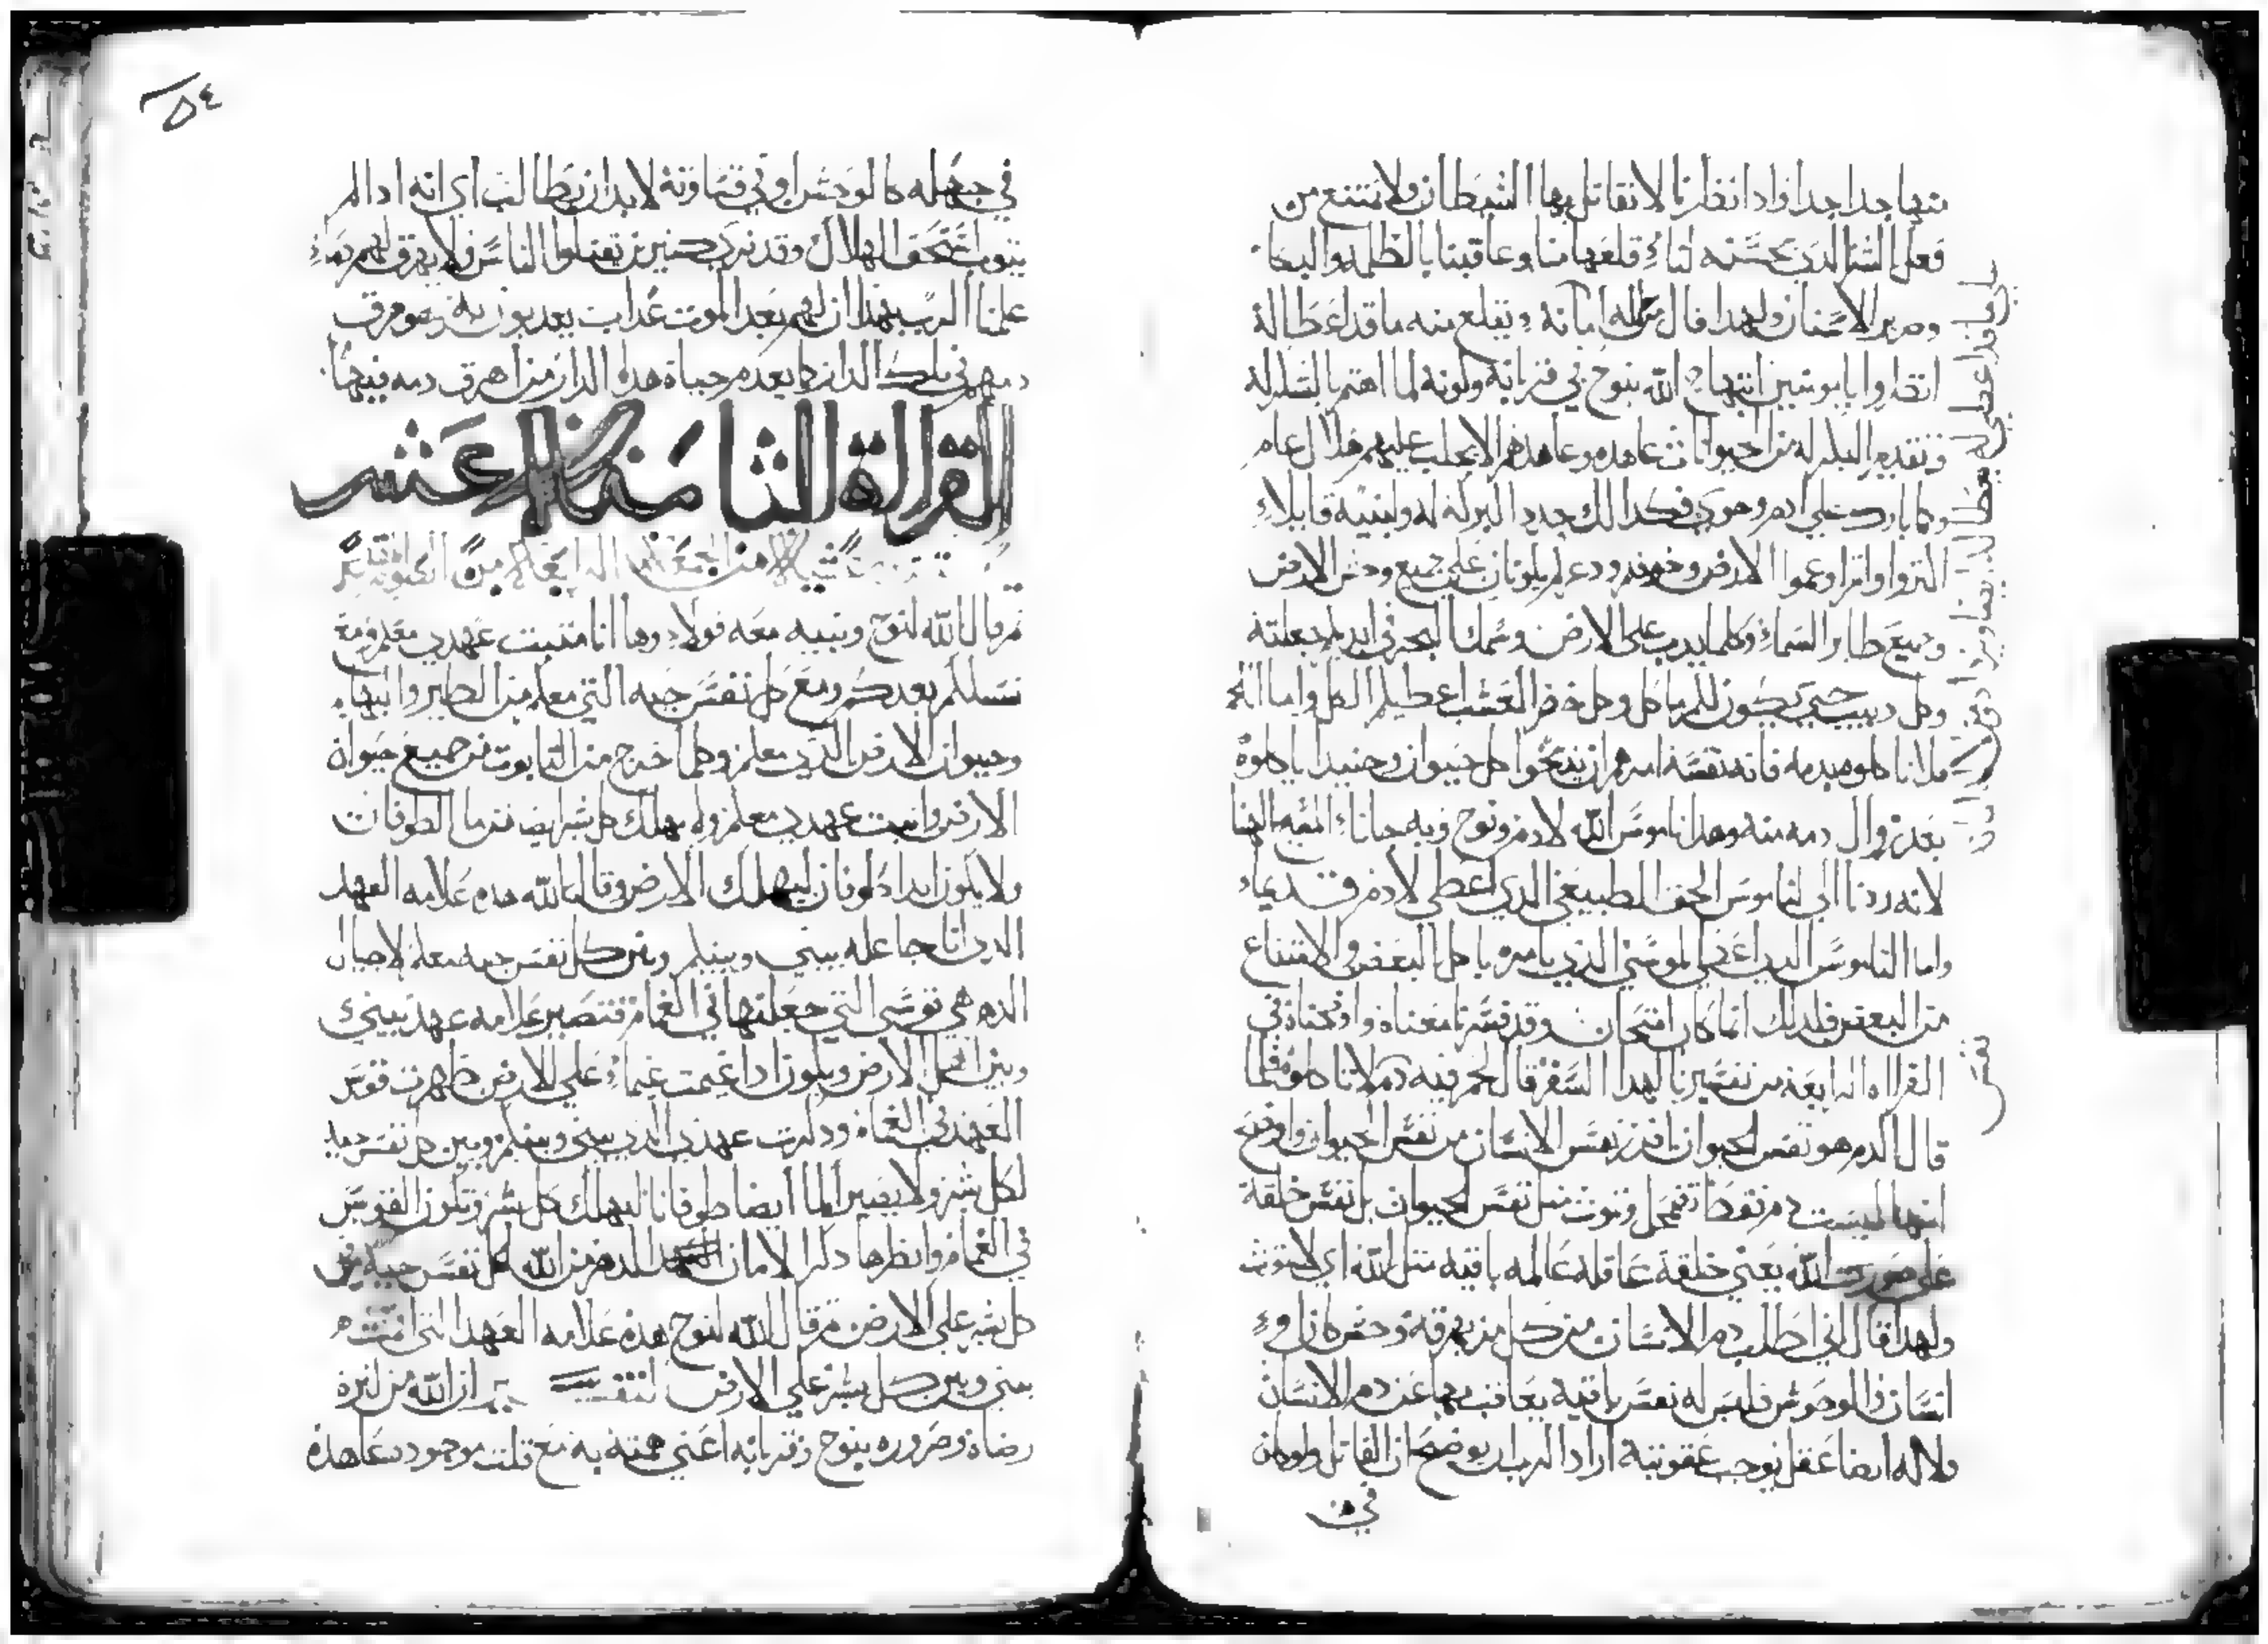 منها جدا جدا فاذا نظرنا لا نقاتل بها الشيطان ولا نمتنع من
فعل الشر الذي يحسنه لنا قلعها منا وعاقبنا بالظلمة والبكاء
وصرير الاسنان ولهذا قال من له امانة ويقلع منه ما قد اعطا له
انظروا يا مومنين ابتهاج الله بنوح في قربانه ولونه لما اهتم بالسلالة
وتقديم البكر له من الحيوانات عاهده وعاهدهم لا يجلب عليهم هلال عام
وكما بارك علي ادم وحوي فكذالك جدد البركة له ولبنيه قايلا
اكتروا واتمروا وعموا الارض وخوفكم ورعبكم يكونان علي جميع وحش الارض
وجميع طاير السماء وكلما يدب علي الارض وسمك البحر في ايديكم جعلته
وكل دبيب حي يكون لكم ماكل وكل خضر العشب اعطيكم الكل واما اللحم
فلا تاكلوه بدمه فانه نفسه امرهم ان يذبحوا كل حيوان وحينيد ياكلوه
بعد زوال دمه منه وهذا ناموس الله لادم ونوح وبه جانا المسيح الهنا
لانه ردنا الي الناموس الحق الطبيعي الذي اعطي لادم قديما
واما الناموس الذي اعطي لموسي الذي يامره باكل البعض والامتناع
من البعض فلذلك انما كان امتحان وقد فسرنا معناه واوضحناه في
القراه الرابعه من تفسيرنا لهذا السفر قال لحم فيه دم لا تاكلوه فلما
قال الدم هو نفس الحيوان افرز نفس الانسان من نفس الحيوان واوضح
انها ليست دم تقطا تضمحل وتموت مثل نفس الحيوان بل نفس خلقة
علي صورت الله يعني خلقة عاقلة عالمه باقيه متل الله اي لا تموت
ولهذا قال اني اطلب دم الانسان من كل من يهرقه وحش كان او
انسان والوحوش فليس له نفس باقيه يعاقب بها عن دم الانسان
ولاله ايضا عقل يوجب عقوبته اراد الرب ان يوضح ان القاتل ولو كان
في
نفس
٥٤
في جهله كالوحش او في قساوته لابد ان يطالب اي انه اذا لم
يتوب استحق الهلاك وقد نري كتيرين يقتلوا الناس ولا يهرق لهم دماء
علمنا الرب بهذا ان لهم بعد الموت عذاب يعذبون به وهو هرق
دمهم في تلك الدار كما يعدم حياة هذه الدار من اهرق دمه فيها
القراة الثامنة عشر
من الجمعة الرابعة من
ثم قال الله لنوح وبنيه معه قولا وها انا متبت عهدي معكم ومع
نسلكم بعدكم ومع كل نفس حيه التي معكم من الطير والبهايم
وحيوان الارض الذي معكم وكلما خرج من التابوت من جميع حيوان
الارض واتبت عهدي معكم ولا يهلك كل بشر ايضا من ما الطوفان
ولا يكون ابدا طوفان ليهلك الارض وقال الله هذه علامه العهد
الذي انا جاعله بيني وبينكم وبين كل نفس حيه معكم لاجيال
الدهر هي قوسي التي جعلتها في الغمام فتصير علامه عهد بيني
وبين اهل الارض ويكون اذا غيمت غيما علي الارض ظهرت قوس
العهد في الغمام وذكرت عهدي الذي بيني وبينكم وبين كل نفس حيه
لكل بشر ولا يصير الما ايضا طوفانا ليهلك كل بشر وتكون القوس
في الغمام وانظرها ذكر الامان للدهر من الله كل نفس حيه من
كل بشر علي الارض ثم قال الله لنوح هذه علامه العهد التي اقمت
بيني وبين كل بشر علي الارض التفسير ان الله من كترة
رضاه وضروره بنوح وقربانه اعني همته به مع قلت موجوده عاهده